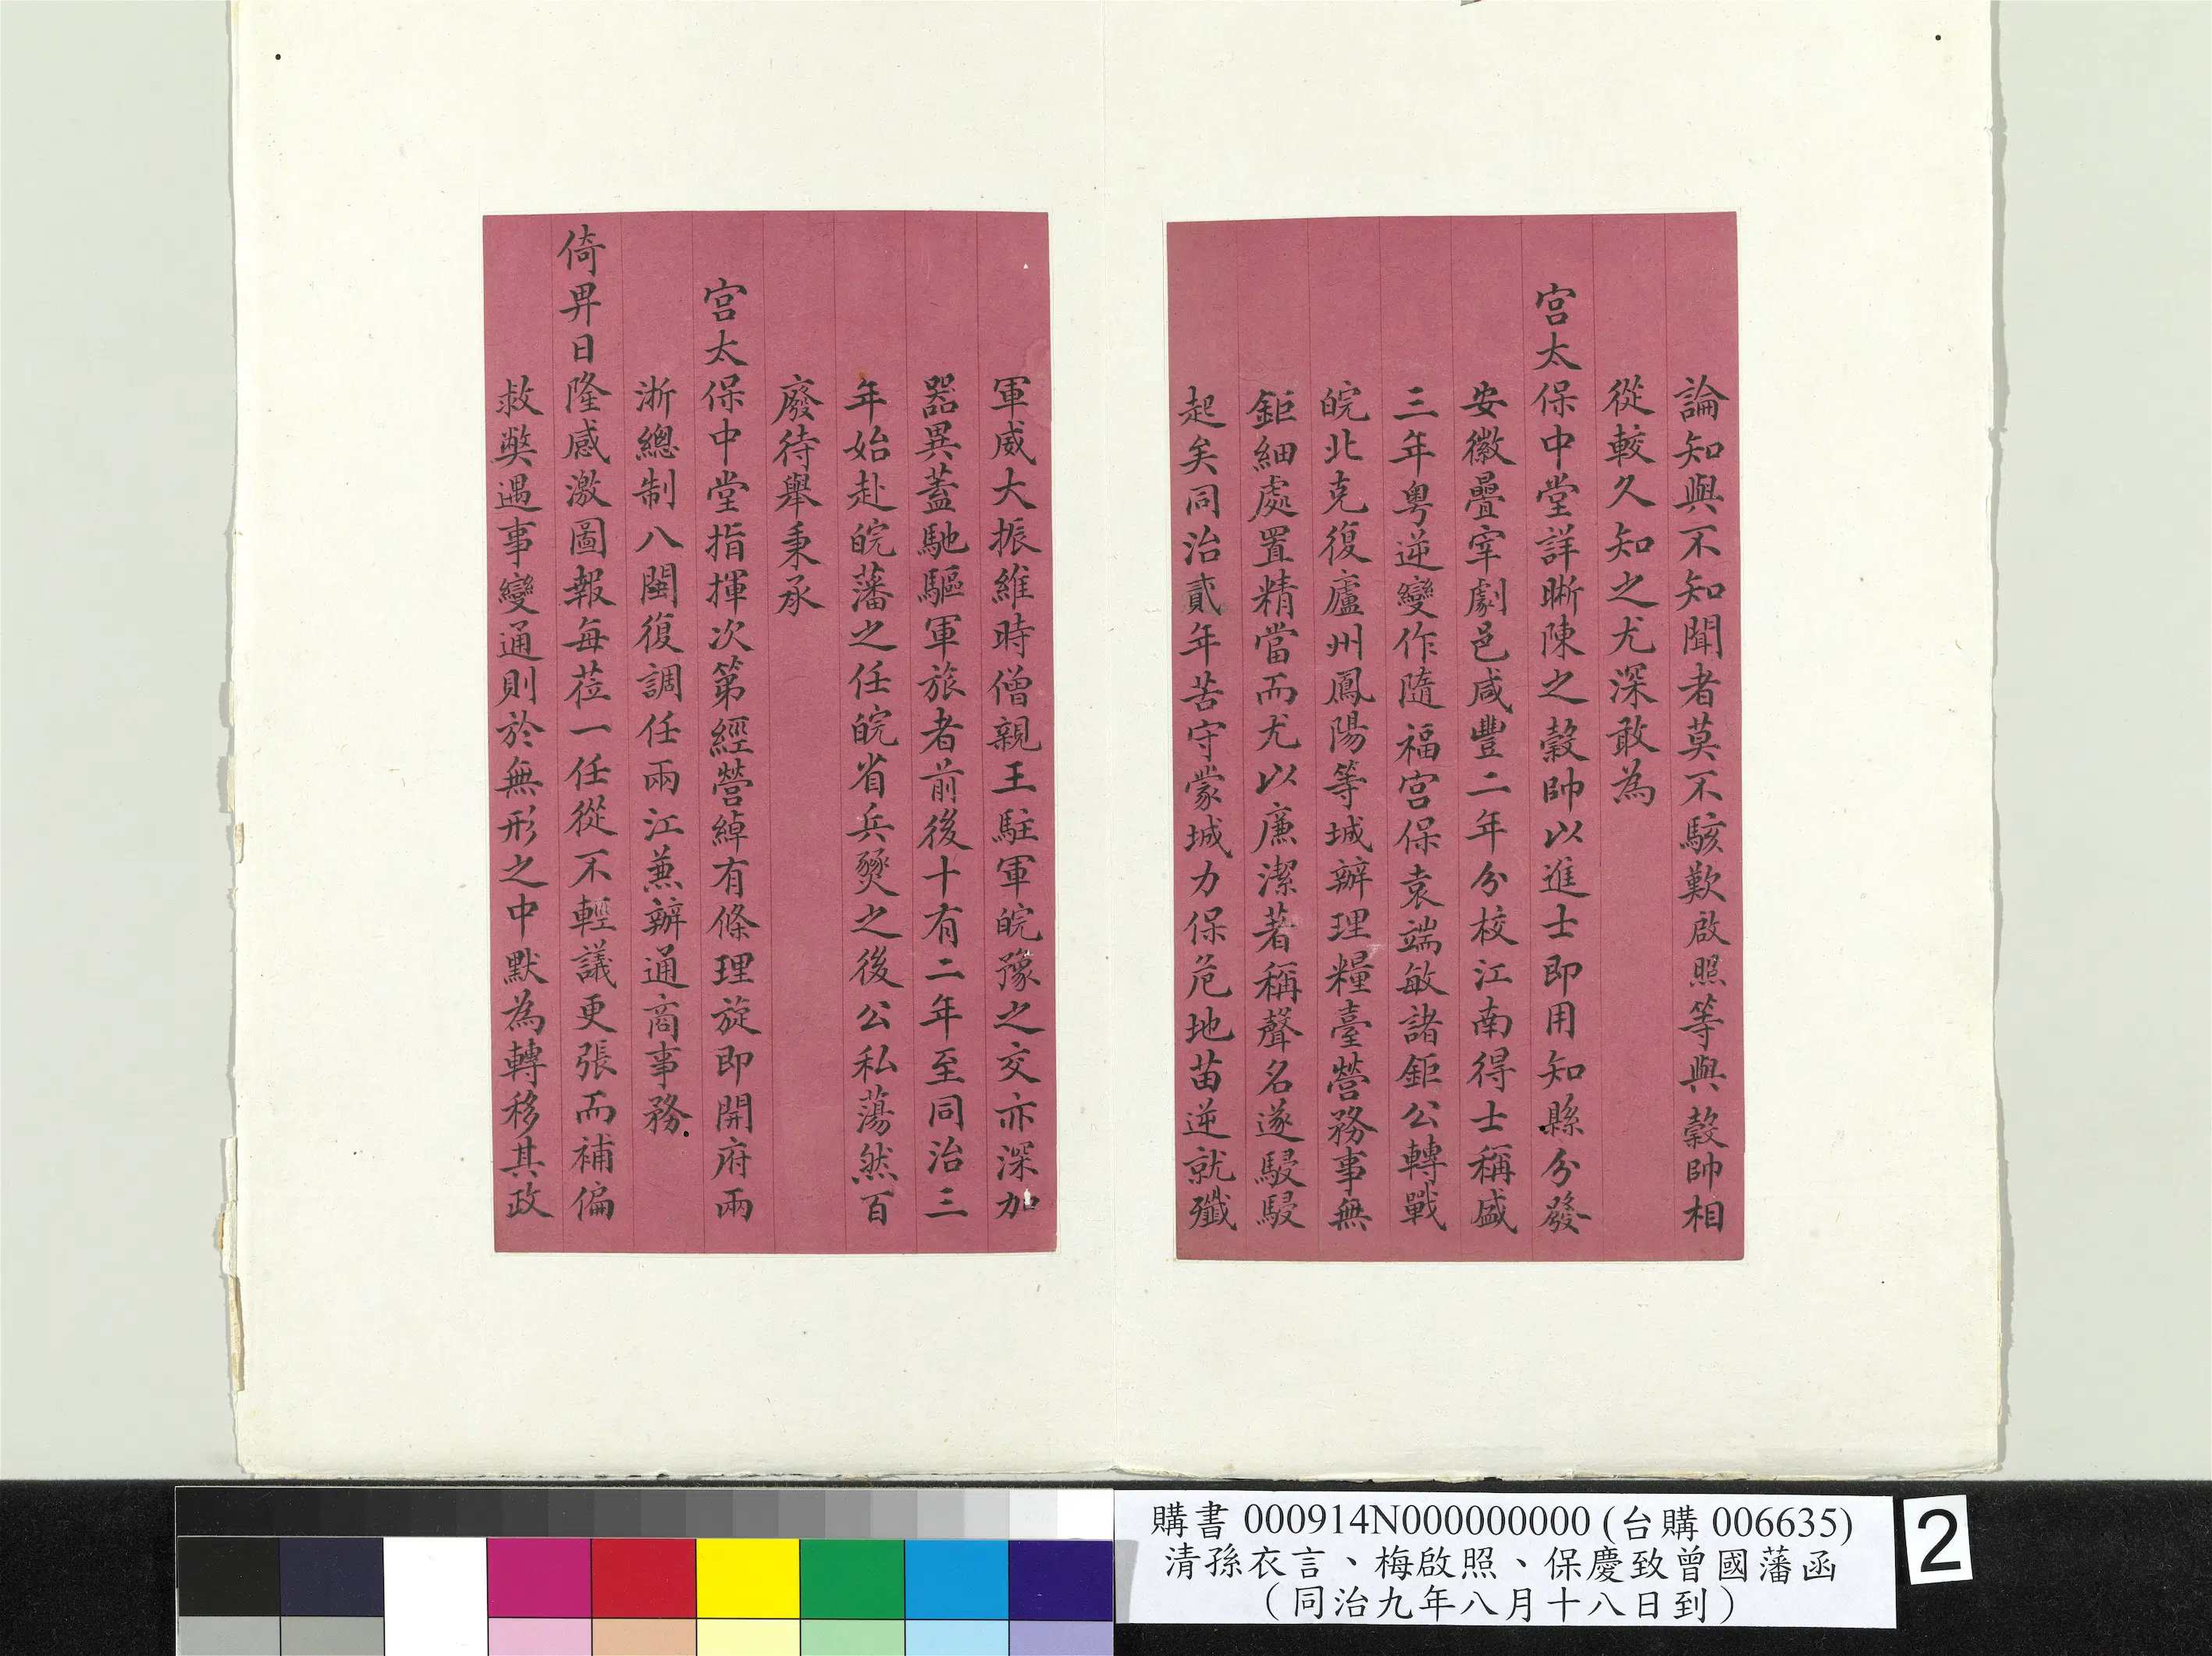 論知與不知聞者莫不駭歎啟照等與縠帥相
從較久知之尤深敢為
宮太保中堂詳晰陳之縠帥以進士即用知縣分發
安徽疊宰劇邑咸豐二年分校江南得士稱盛
三年粵逆變作隨福宮保袁端敏諸鉅公轉戰
皖北克復廬州鳳陽等城辦理糧臺營務事無
鉅細處置精當而尤以廉潔著稱聲名遂駸駸
起矣同治貳年苦守蒙城力保危地苗逆就殲
軍威大振維時僧親王駐軍皖豫之交亦深加
器異蓋馳驅軍旅者前後十有二年至同治三
年始赴皖藩之任皖省兵燹之後公私蕩然百
廢待舉秉承
宮太保中堂指揮次第經營綽有條理旋即開府兩
浙總制八閩復調任兩江兼辦通商事務
倚畀日隆感激圖報每莅一任從不輕議更張而補偏
救獘遇事變通則於無形之中默為轉移其政
購書 000914N000000000 (台購 006635)
清孫衣言、梅啟照、保慶致曾國藩函
（同治九年八月十八日到）
2